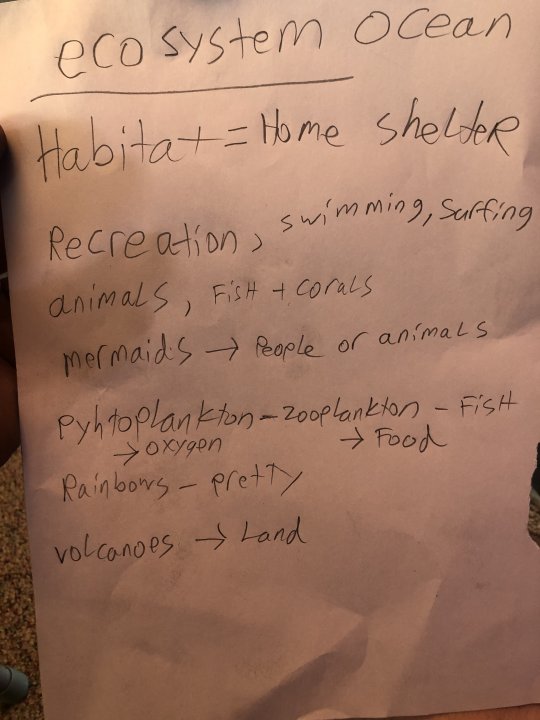 ecosystem ocean
Habitat = Home shelter
Recreation, swimming, surfing
animals, Fish + corals
mermaids → People or animals
Pyhtoplankton - zooplankton - Fish
→ oxygen → Food
Rainbows - pretty
volcanoes → Land